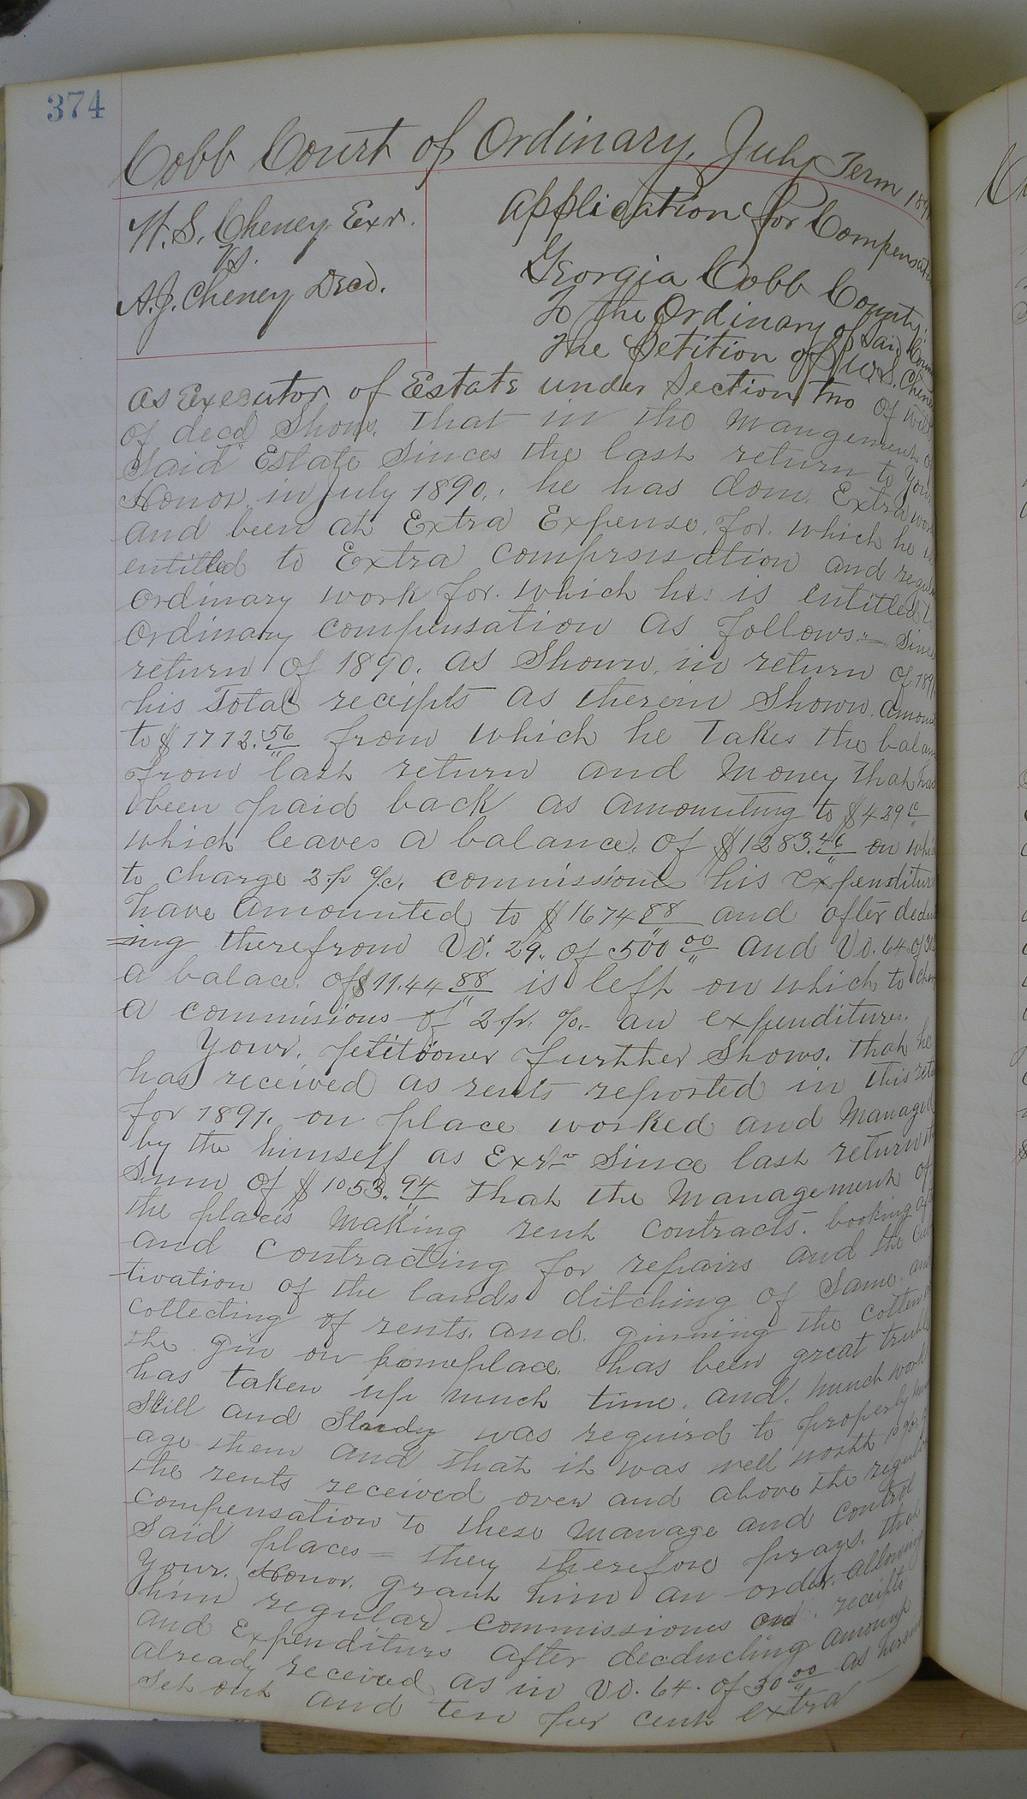 374
Cobb Court of Ordinary, July Term
W. S. Cheney Exr.
vs.
A. J. Cheney Decd.
Application for Compensati
Georgia Cobb County.
To the Ordinary of said Coun
The Petition of W. S. Chene
as Executor of Estate under Section two of Will
of decd Shows, that in the Mangement of
said Estate Sinces the last return to Your
Honor in July 1890., he has don Extra work
and been at Extra Expense, for. which he is
entitled to Extra compensation and regul
ordinary work for. which he is entitled t
ordinary compensation as follows:- Since
return of 1890. as Shown in return of 189
his Total receipts as therein Shown amoun
to $1712.56 from which he takes the balan
from last return and Money that has
been paid back as amounting to $429
which leaves a balance, of $1283.46 on whi
to charge 2 p %, commission his expenditur
have amounted to $1674 88 and after deduc
=ing therefrom Vo. 29. of 500 00 and Vo. 64. of 30
a balace of $11.44 88 is left on which to char
a commisions of 2 pr. %.- an expenditures.
Your. petitioner further Shows. that he
has received as rents reported in this ret
for 1891. on place worked and Managed
by the himself as Exr Since last return th
Sum of $1053.94 that the Management of
the places making rent contracts. booking af
and contracting for repairs and the Cul
tivation of the lands ditching of Same and
collecting of rents. and. ginning the cotton
the gin on homeplace has been great trubl
has taken up much time. and. much work
Skill and Study was requird to properly man
age them and that it was well worth
the rents received over and above the regular
compensation to these Manage and control
said places = they therefore prays. that
Your. Honor. grant him an order. allowing
him regular commissions on receipts
and Expenditurs after deducting amount
already received as in Vo. 64. of 30 00 as herein
Set out and ten per cent extra